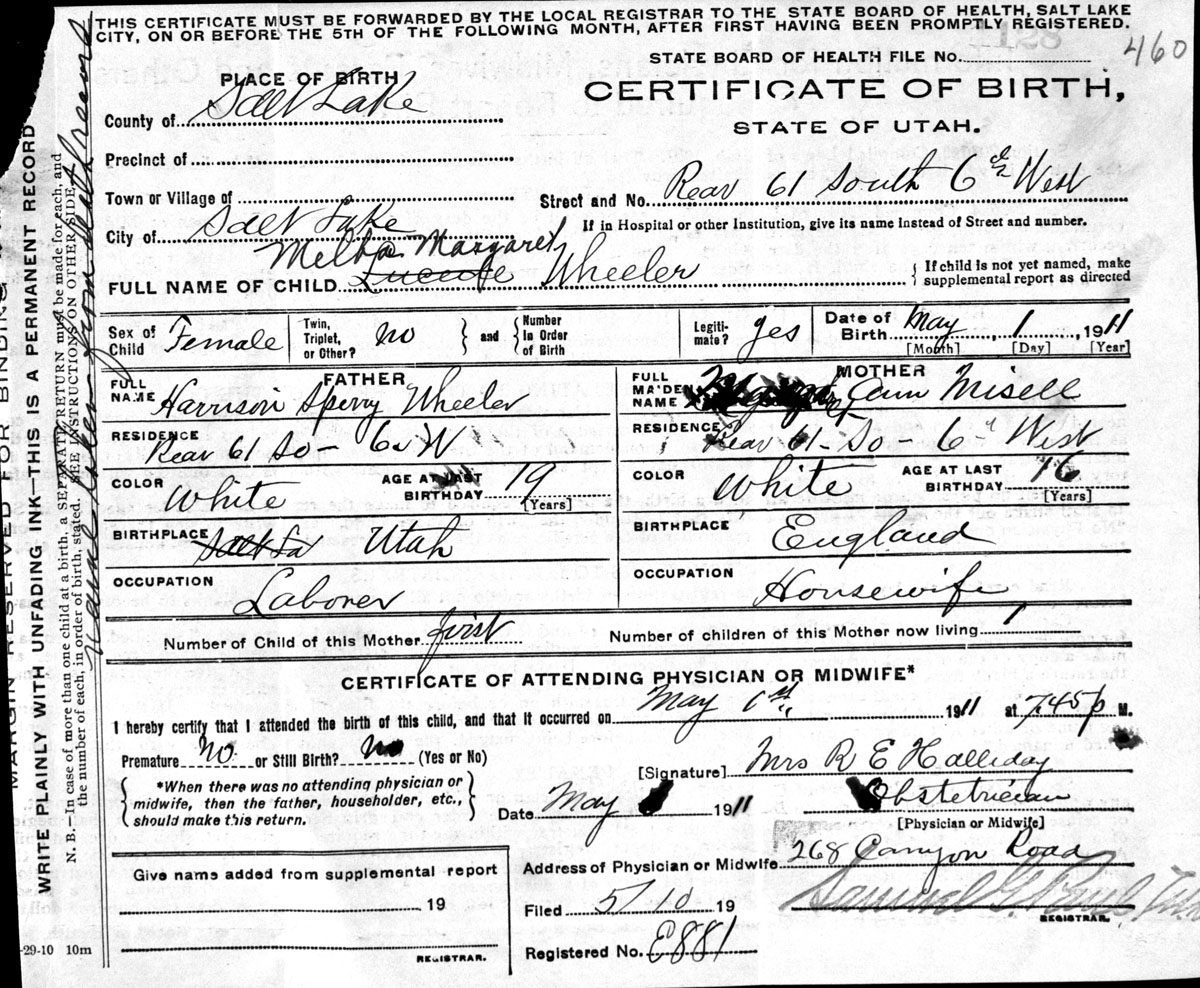 THIS CERTIFICATE MUST BE FORWARDED BY THE LOCAL REGISTRAR TO THE STATE BOARD OF HEALTH, SALT LAKE
CITY, ON OR BEFORE THE 5TH OF THE FOLLOWING MONTH, AFTER FIRST HAVING BEEN PROMPTLY REGISTERED.
460
STATE BOARD OF HEALTH FILE No.
PLACE OF BIRTH
CERTIFICATE OF BIRTH,
County of Salt Lake
STATE OF UTAH.
Precinct of
Town or Village of
Street and No. Rear 61 South 6th West
City of Salt Lake
If in Hospital or other Institution, give its name instead of Street and number.
Melba Margaret
FULL NAME OF CHILD Wheeler
If child is not yet named, make
supplemental report as directed
Sex of Child Female
Twin, Triplet, or Other? no
and Number In Order of Birth
Legiti-mate? yes
Date of Birth May 1, 1911
[Month] [Day] [Year]
FATHER
FULL NAME Harrison Sperry Wheeler
RESIDENCE Rear 61 So - 6th W
COLOR White
AGE AT LAST BIRTHDAY 19
[Years]
BIRTHPLACE Salt La Utah
OCCUPATION Laborer
MOTHER
FULL MAIDEN NAME Ann Misell
RESIDENCE Rear 61 - So - 6th West
COLOR White
AGE AT LAST BIRTHDAY 16
[Years]
BIRTHPLACE England
OCCUPATION Housewife
Number of Child of this Mother first
Number of children of this Mother now living 1
CERTIFICATE OF ATTENDING PHYSICIAN OR MIDWIFE*
I hereby certify that I attended the birth of this child, and that it occurred on May 1st, 1911 at 7.45 p M.
Premature No or Still Birth? No (Yes or No)
*When there was no attending physician or
midwife, then the father, householder, etc.,
should make this return.
[Signature] Mrs R E Halliday
Date May 1911
Obstetrician
[Physician or Midwife]
Give name added from supplemental report
19
REGISTRAR.
Address of Physician or Midwife 268 Canyon Road
Filed 5/10 19
Samuel G. Paul
REGISTRAR.
Registered No. E881
-29-10 10m
MARGIN RESERVED FOR BINDING
WRITE PLAINLY WITH UNFADING INK—THIS IS A PERMANENT RECORD
N. B.—In case of more than one child at a birth, a SEPARATE RETURN must be made for each, and
the number of each, in order of birth, stated. SEE INSTRUCTIONS ON OTHER SIDE.
Name taken from